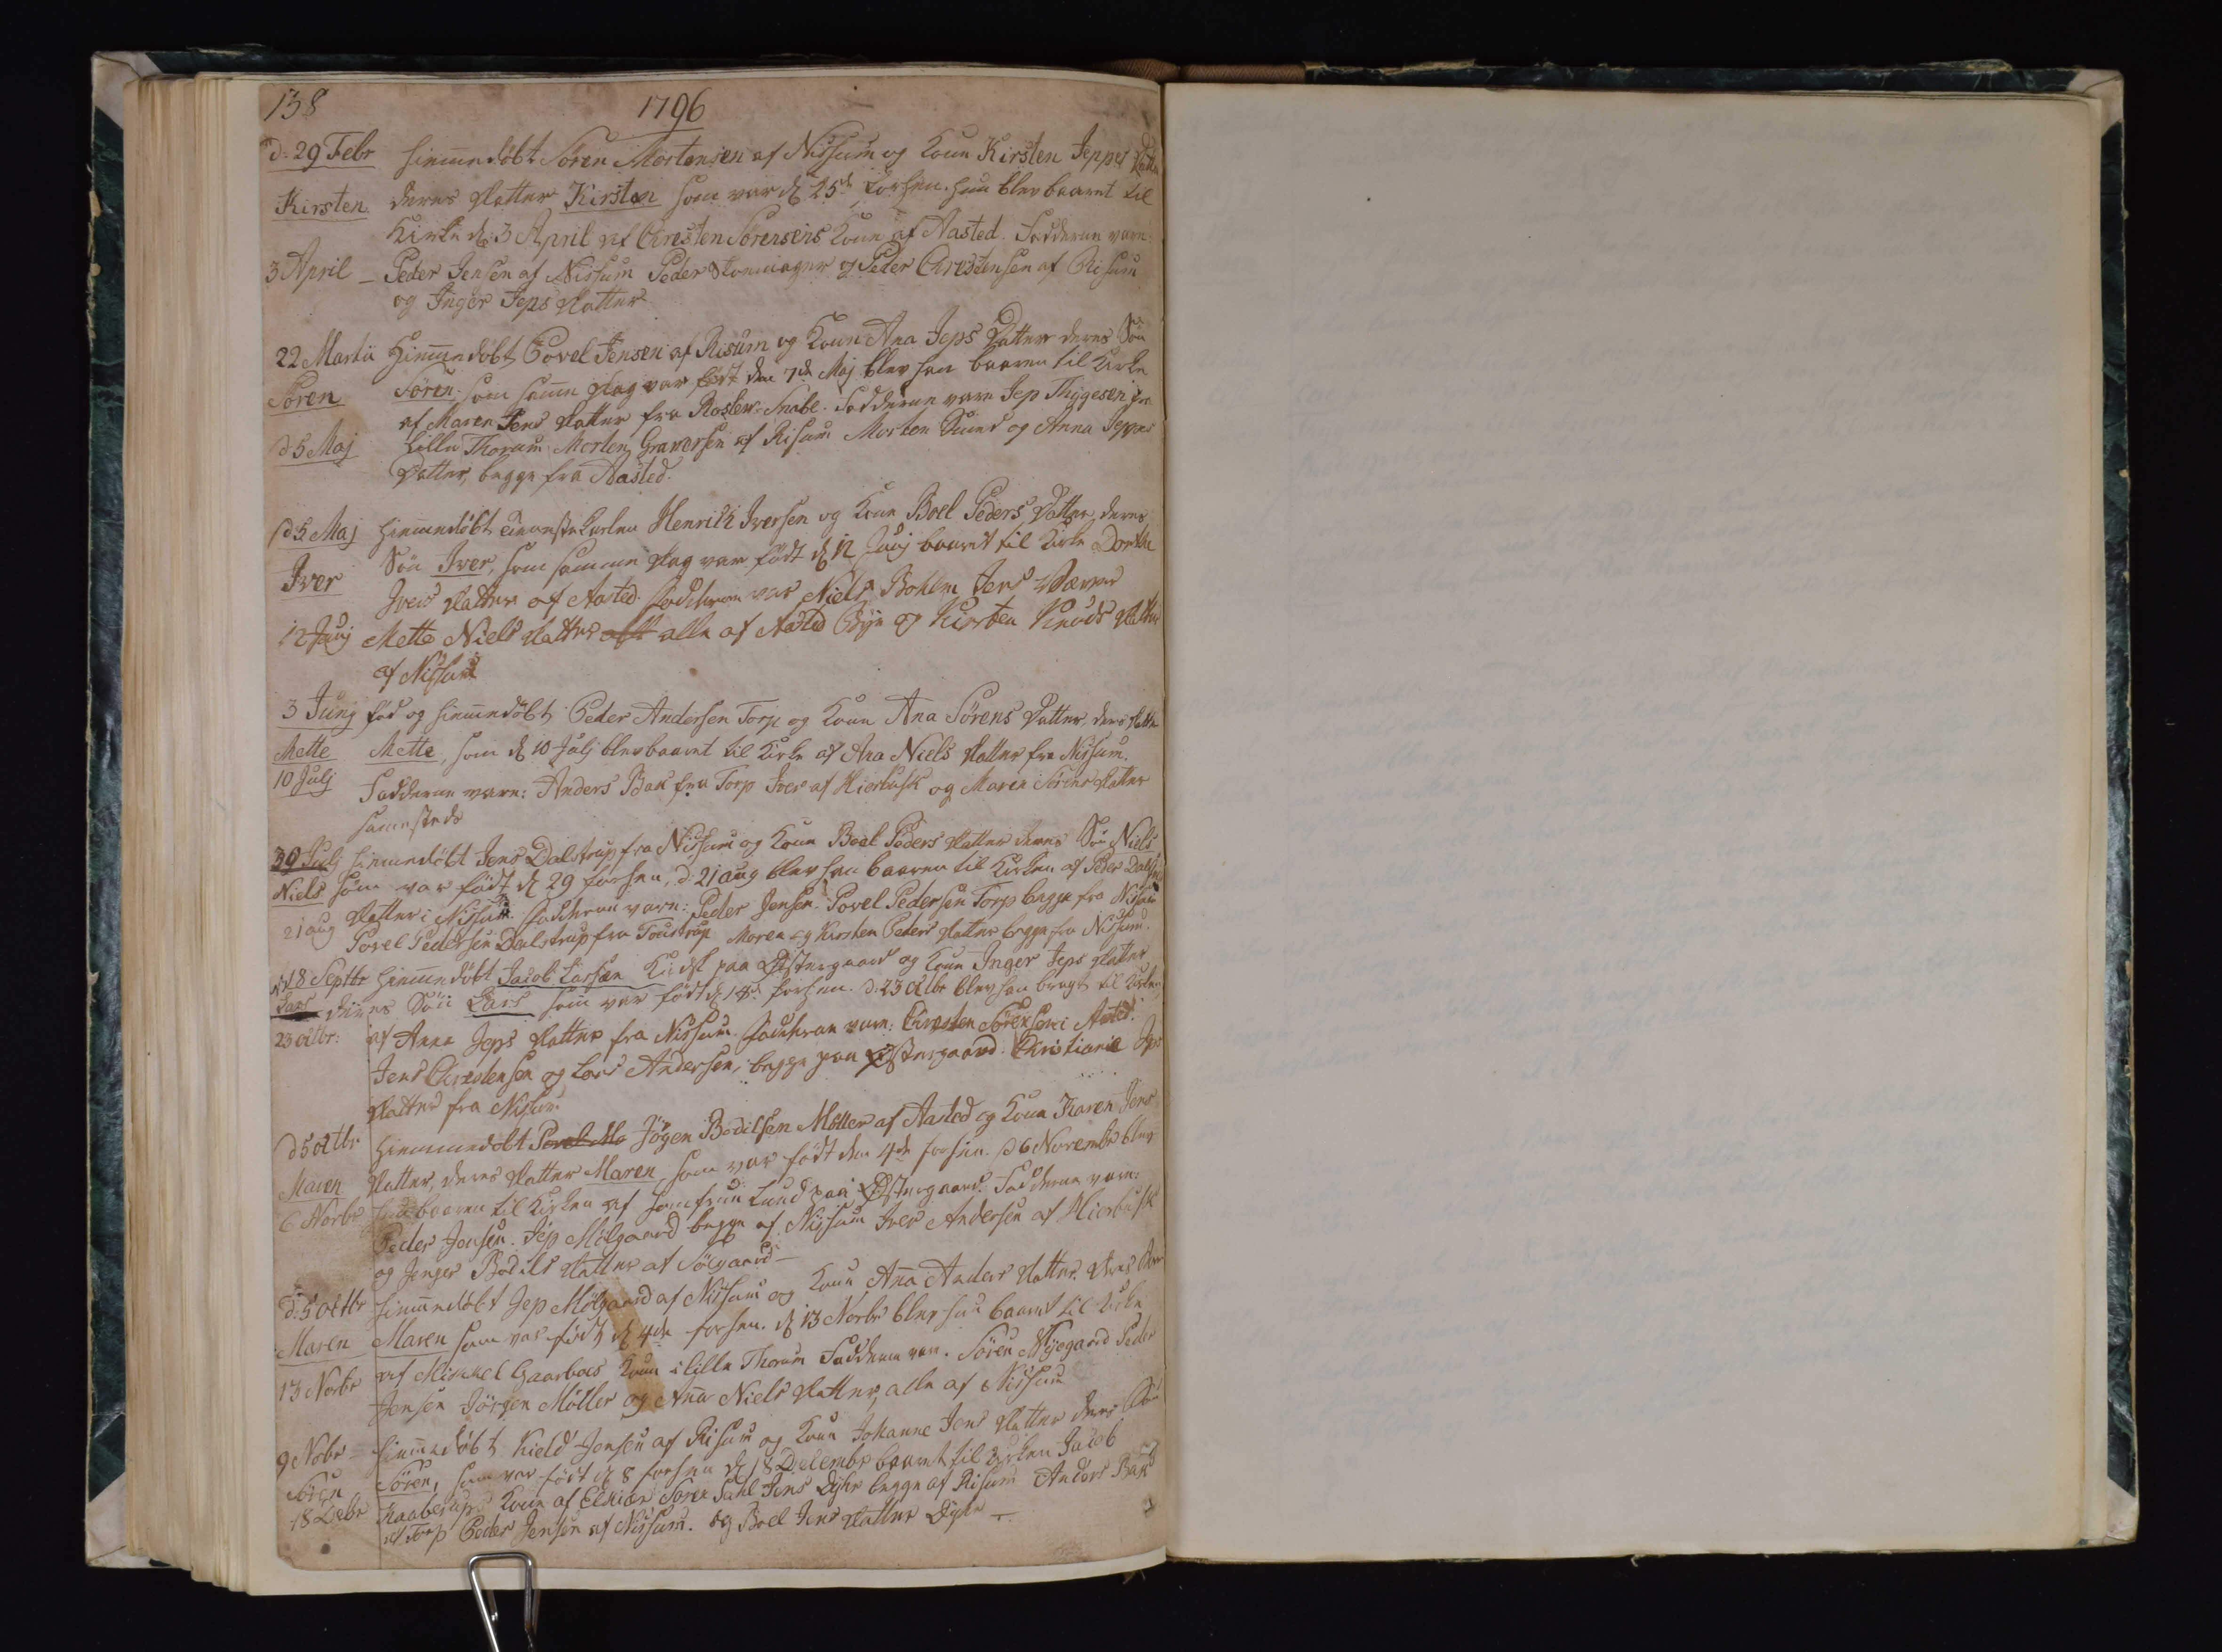 138 1796
d: 29 Febr hiemmedöbt Sören Mortensen af Nissum og Kone Kirsten Jeppes
Kirsten deres Datter Kirsten som var d 25de forhen. hun blev baaret til
Kirke d: 3 April af Christen Sörensens Kone af Aasted. Fadderne vare
3 April – Peder Jensen af Nissum Peder og Peder Christensen af Risum
og Inger Jeps Datter
22 Martii Hiemmedöbt Povel Jensen af Risum og Kone Ana Jeps Datter deres Sön
Sören Sören som samme Dag var födt den 7de Maj blev han baaren til Kirke
af Maren Jens Datter fra Roslev. Fadderne vare Jep Thygesen fra
d 5 Maj Lille Thorum Morten Graversen af Risum Morten og Anna Jeppes
Datter, begge fra Aasted.
d 5 Maj hiemmedöbt Henrich Iversen og Kone Boel Peders Datter deres
Iver Sön Iver, som samme Dag var födt d 12 Junj baaret til Kirke Dorthe
Ivers Datter af Aasted. Fadderne var Niels Bohlm Jens Væver
12 Junj Mette Niels Datter alle af Aasted Bye og Kirsten Knuds Datter
af Nissum
3 Junj föd og hiemmedöbt Peder Andersen Torp og Kone Ana Sörens Datter, deres Datter
Mette Mette, som d 10 Julj blev baaret til Kirke af Ana Niels Datter fra Nissum.
10 Julj Fadderne vare: Anders Bak fra Torp Iver af Hierbusk og Maren Sörens Datter
sammesteds
30 Julj hiemmedöbt Jens Dalstrup fra Nissum og Kone Boel Peders Datter deres Sön Niels
Niels som var födt d 29 forhen, d 21 aug blev han baaren til Kirken af Peder
21 aug Datter i Nissum Fadderne vare: Peder Jensen. Povel Pedersen Torp begge fra Nissum
Povel Pedersen Dalstrup fra Toustrup Maren og Kirsten Peders Datter begge fra Nissum.
d 18 Septbr hiemmedöbt Jacob Larsen Kudsk paa Östergaard og Kone Inger Jeps Datter
Lars deres Sön Lars som var födt d forhen. d: 23 octbr blev han bragt til Kirken
23 octbr: af Anna Jeps Datter fra Nissum. Fadderne vare: Christen Sörensen i Aasted.
Jens Christensen og Lars Andersen, begge paa Östergaard. Christiane Jeps
Datter fra Nissum
d 5 octbr hiemmedöbt Povel Mo Jögen Bodilsen Möller af Aasted og Kone Karen Jens
Maren Datter, deres Datter Maren som var födt den 4de forhen. d 6 Novembr blev
6 Norbr hun baaren til Kirken af Jomfrue Lund paa Östergaard. Fadderne vare:
Peder Jensen. Jep Mölgaard begge af Nissum Iver Andersen af Hierbusk
og Jenger Bodils Datter af Söegaard –
d: 5 octbr hiemmedöbt Jep Mölgaard af Nissum og Kone Ana Anders Datter. deres
Maren Maren som var födt d 4de forhen. d 13 Norbr blev hun baaret til Kirke
13 Norbr af Mikkel Gaarboes Kone i Lille Thorum Fadderne var. Sören Nÿegaard Peder
Jensen Jörgen Möller og Ana Niels Datter, alle af Nissum
9 Nobr – hiemmedöbt Kield Jensen af Risum og Kone Johanne Jens Datter deres Sön
Sören Sören, som var födt d 8 forhen d 18 Decembr baaret til Kirken Jacob
18 Decbr Kaaberups Kone af Elkiær Sören Dahl Jens Dyhr begge af Risum Anders Bak
af Torp Peder Jensen af Nissum. og Boel Jens Datter Dyhr –